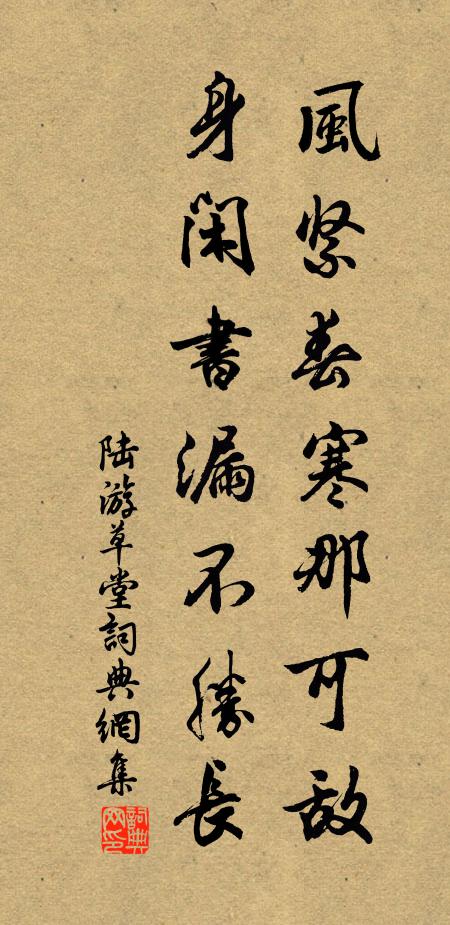 風緊春寒那可敵
身閑書漏不勝長
陆游草堂詞典網集
詞典網印